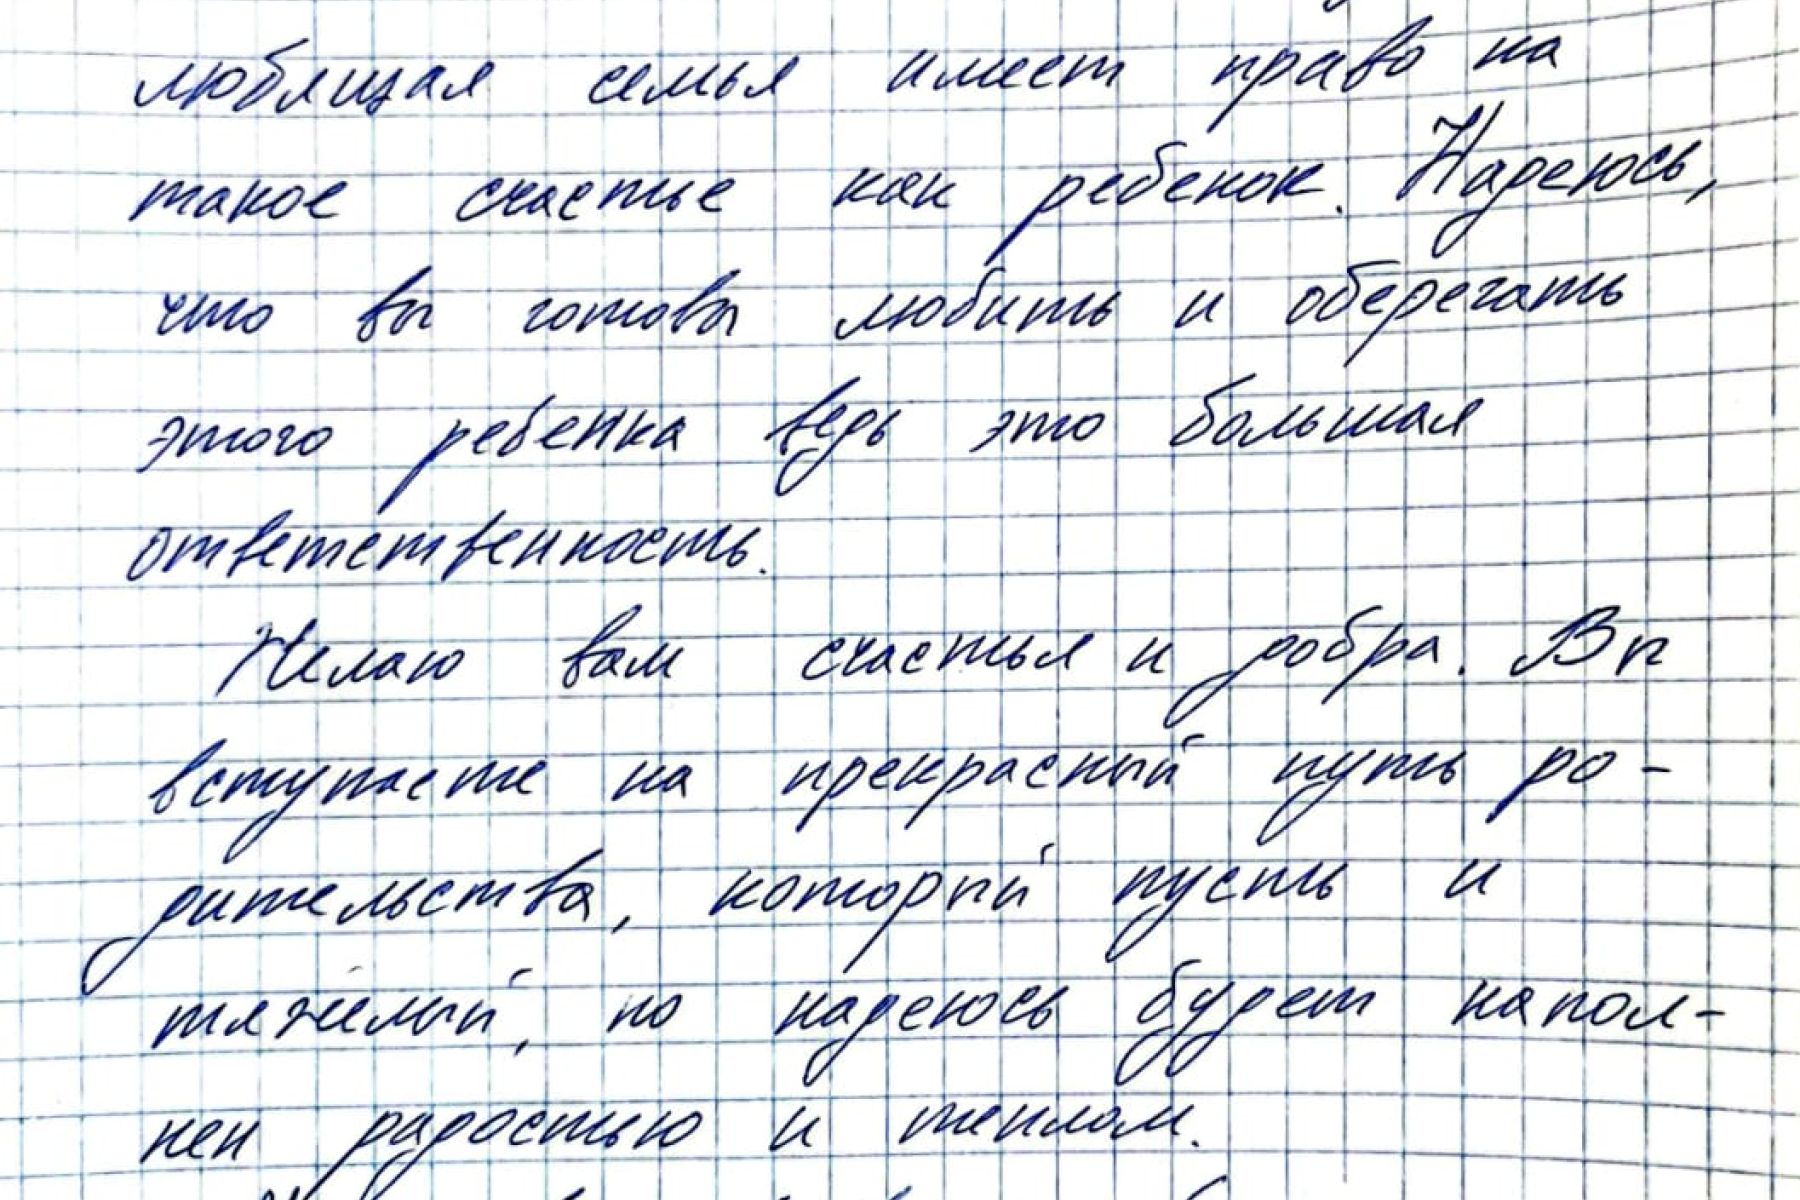 любящая семья имеет право на
такое счастье как ребенок. Надеюсь,
что вы готовы любить и оберегать
этого ребенка ведь это большая
ответственность.
Желаю вам счастья и добра. Вы
вступаете на прекрасный путь ро-
дительства, который пусть и
тяжелый, но надеюсь будет напол-
нен радостью и теплом.